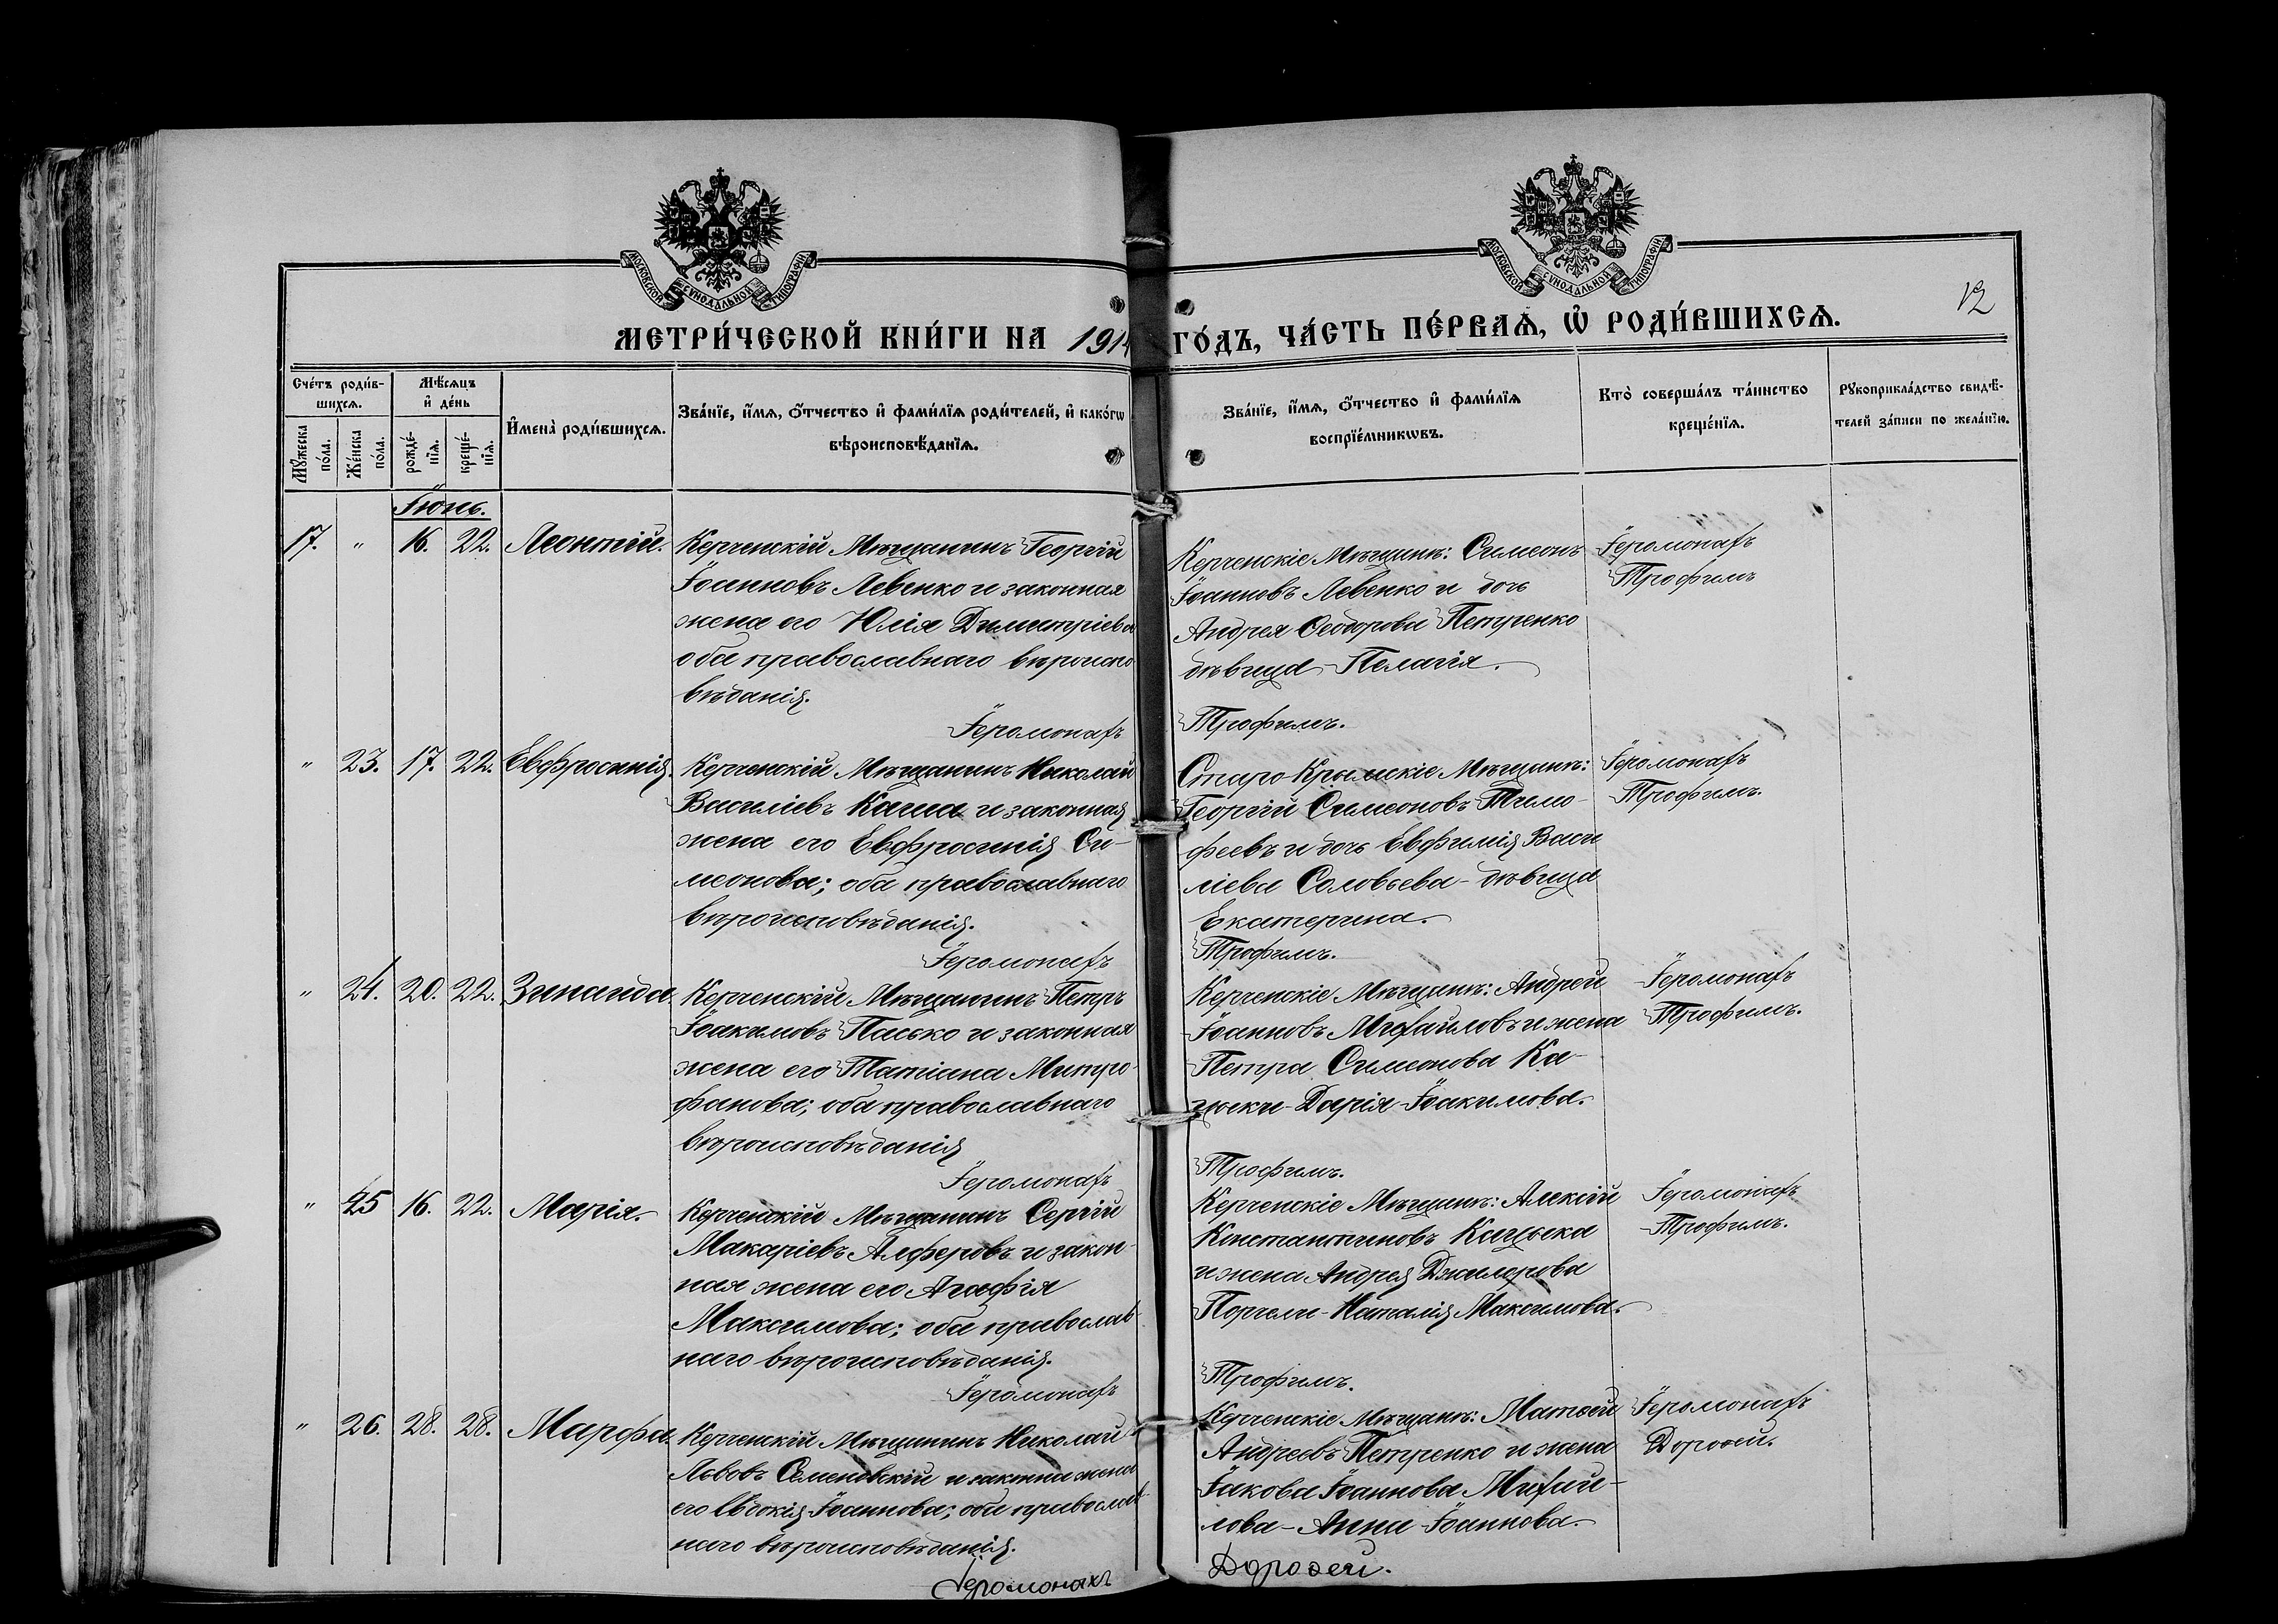 МОСКОВСКОЙ СѴНОДАЛЬНОЙ ТИПОГРАФІИ
МОСКОВСКОЙ СѴНОДАЛЬНОЙ ТИПОГРАФІИ
12
МЕТРИ́ЧЕСКОЙ КНИ́ГИ НА 1914 ГО́ДЪ, ЧА́СТЬ ПЕ́РВАѦ, Ѡ҆ РОДИ́ВШИХСѦ.
Сче́тъ роди́в-
шихсѧ.
Мꙋ́жеска по́ла.
Же́нска по́ла.
Мѣ́сѧцъ
и҆ де́нь
рожде́-
нїѧ.
креще́-
нїѧ.
И҆мена̀ роди́вшихсѧ.
Зва́нїе, и҆́мѧ, ѻ҆́тчество и҆ фами́лїѧ роди́телей, и҆ како́гѡ
вѣроисповѣ́данїѧ.
Зва́нїе, и҆́мѧ, ѻ҆́тчество и҆ фами́лїѧ
воспрїе́мникѡвъ.
Кто̀ соверша́лъ та́инство
креще́нїѧ.
Рꙋкоприкла́дство свидѣ́-
телей за́писи по жела́нїю.
Іюнь.
17. " 16. 22. Леонтій.
Керченскій Мѣщанинъ Георгій
Іоанновъ Левенко и законная
жена его Юлія Димитріева
оба православнаго вѣроиспо
вѣданія.
Іеромонахъ
Керченскіе Мѣщане: Симеонъ
Іоанновъ Левенко и дочь
Андрея Ѳеодорова Петренко
дѣвица Пелагія.
Трофимъ.
Іеромонахъ
Трофимъ
" 23. 17. 22. Евфросинія.
Керченскій Мѣщанинъ Николай
Василіевъ Каша и законная
жена его Евфросинія Си-
меонова; оба православнаго
вѣроисповѣданія.
Іеромонахъ
Старо-Крымскіе Мѣщане:
Георгій Симеоновъ Тимо-
феевъ и дочь Евфимія Васи
ліева Соловьева - дѣвица
Екатерина.
Трофимъ.
Іеромонахъ
Трофимъ.
" 24. 20. 22. Зинаида
Керченскій Мѣщанинъ Петръ
Іоакимовъ Пасько и законная
жена его Татіана Митро-
фанова; оба православнаго
вѣроисповѣданія
Іеромонахъ
Керченскіе Мѣщане: Андрей
Іоанновъ Михайловъ и жена
Петра Симеонова Ка-
Дарія Іоакимова.
Трофимъ.
Іеромонахъ
Трофимъ.
" 25 16. 22. Марія.
Керченскій Мѣщанинъ Сергій
Макаріевъ Алферовъ и закон-
ная жена его Агафія
Максимова; оба православ-
наго вѣроисповѣданія.
Іеромонахъ
Керченскіе Мѣщане: Алексій
Константиновъ
и жена Андрея
Наталія Максимова.
Трофимъ.
Іеромонахъ
Трофимъ.
" 26. 28. 28. Марфа.
Керченскій Мѣщанинъ Николай
Львовъ Семеновскій и законна жена
его Евдокія Іоаннова; оба православ-
наго вѣроисповѣданія.
Іеромонахъ
Керченскіе Мѣщане: Матѳей
Андреевъ Петренко и жена
Іакова Іоаннова Михай-
лова - Анна Іоаннова.
Дороѳей.
Іеромонахъ
Дороѳей.